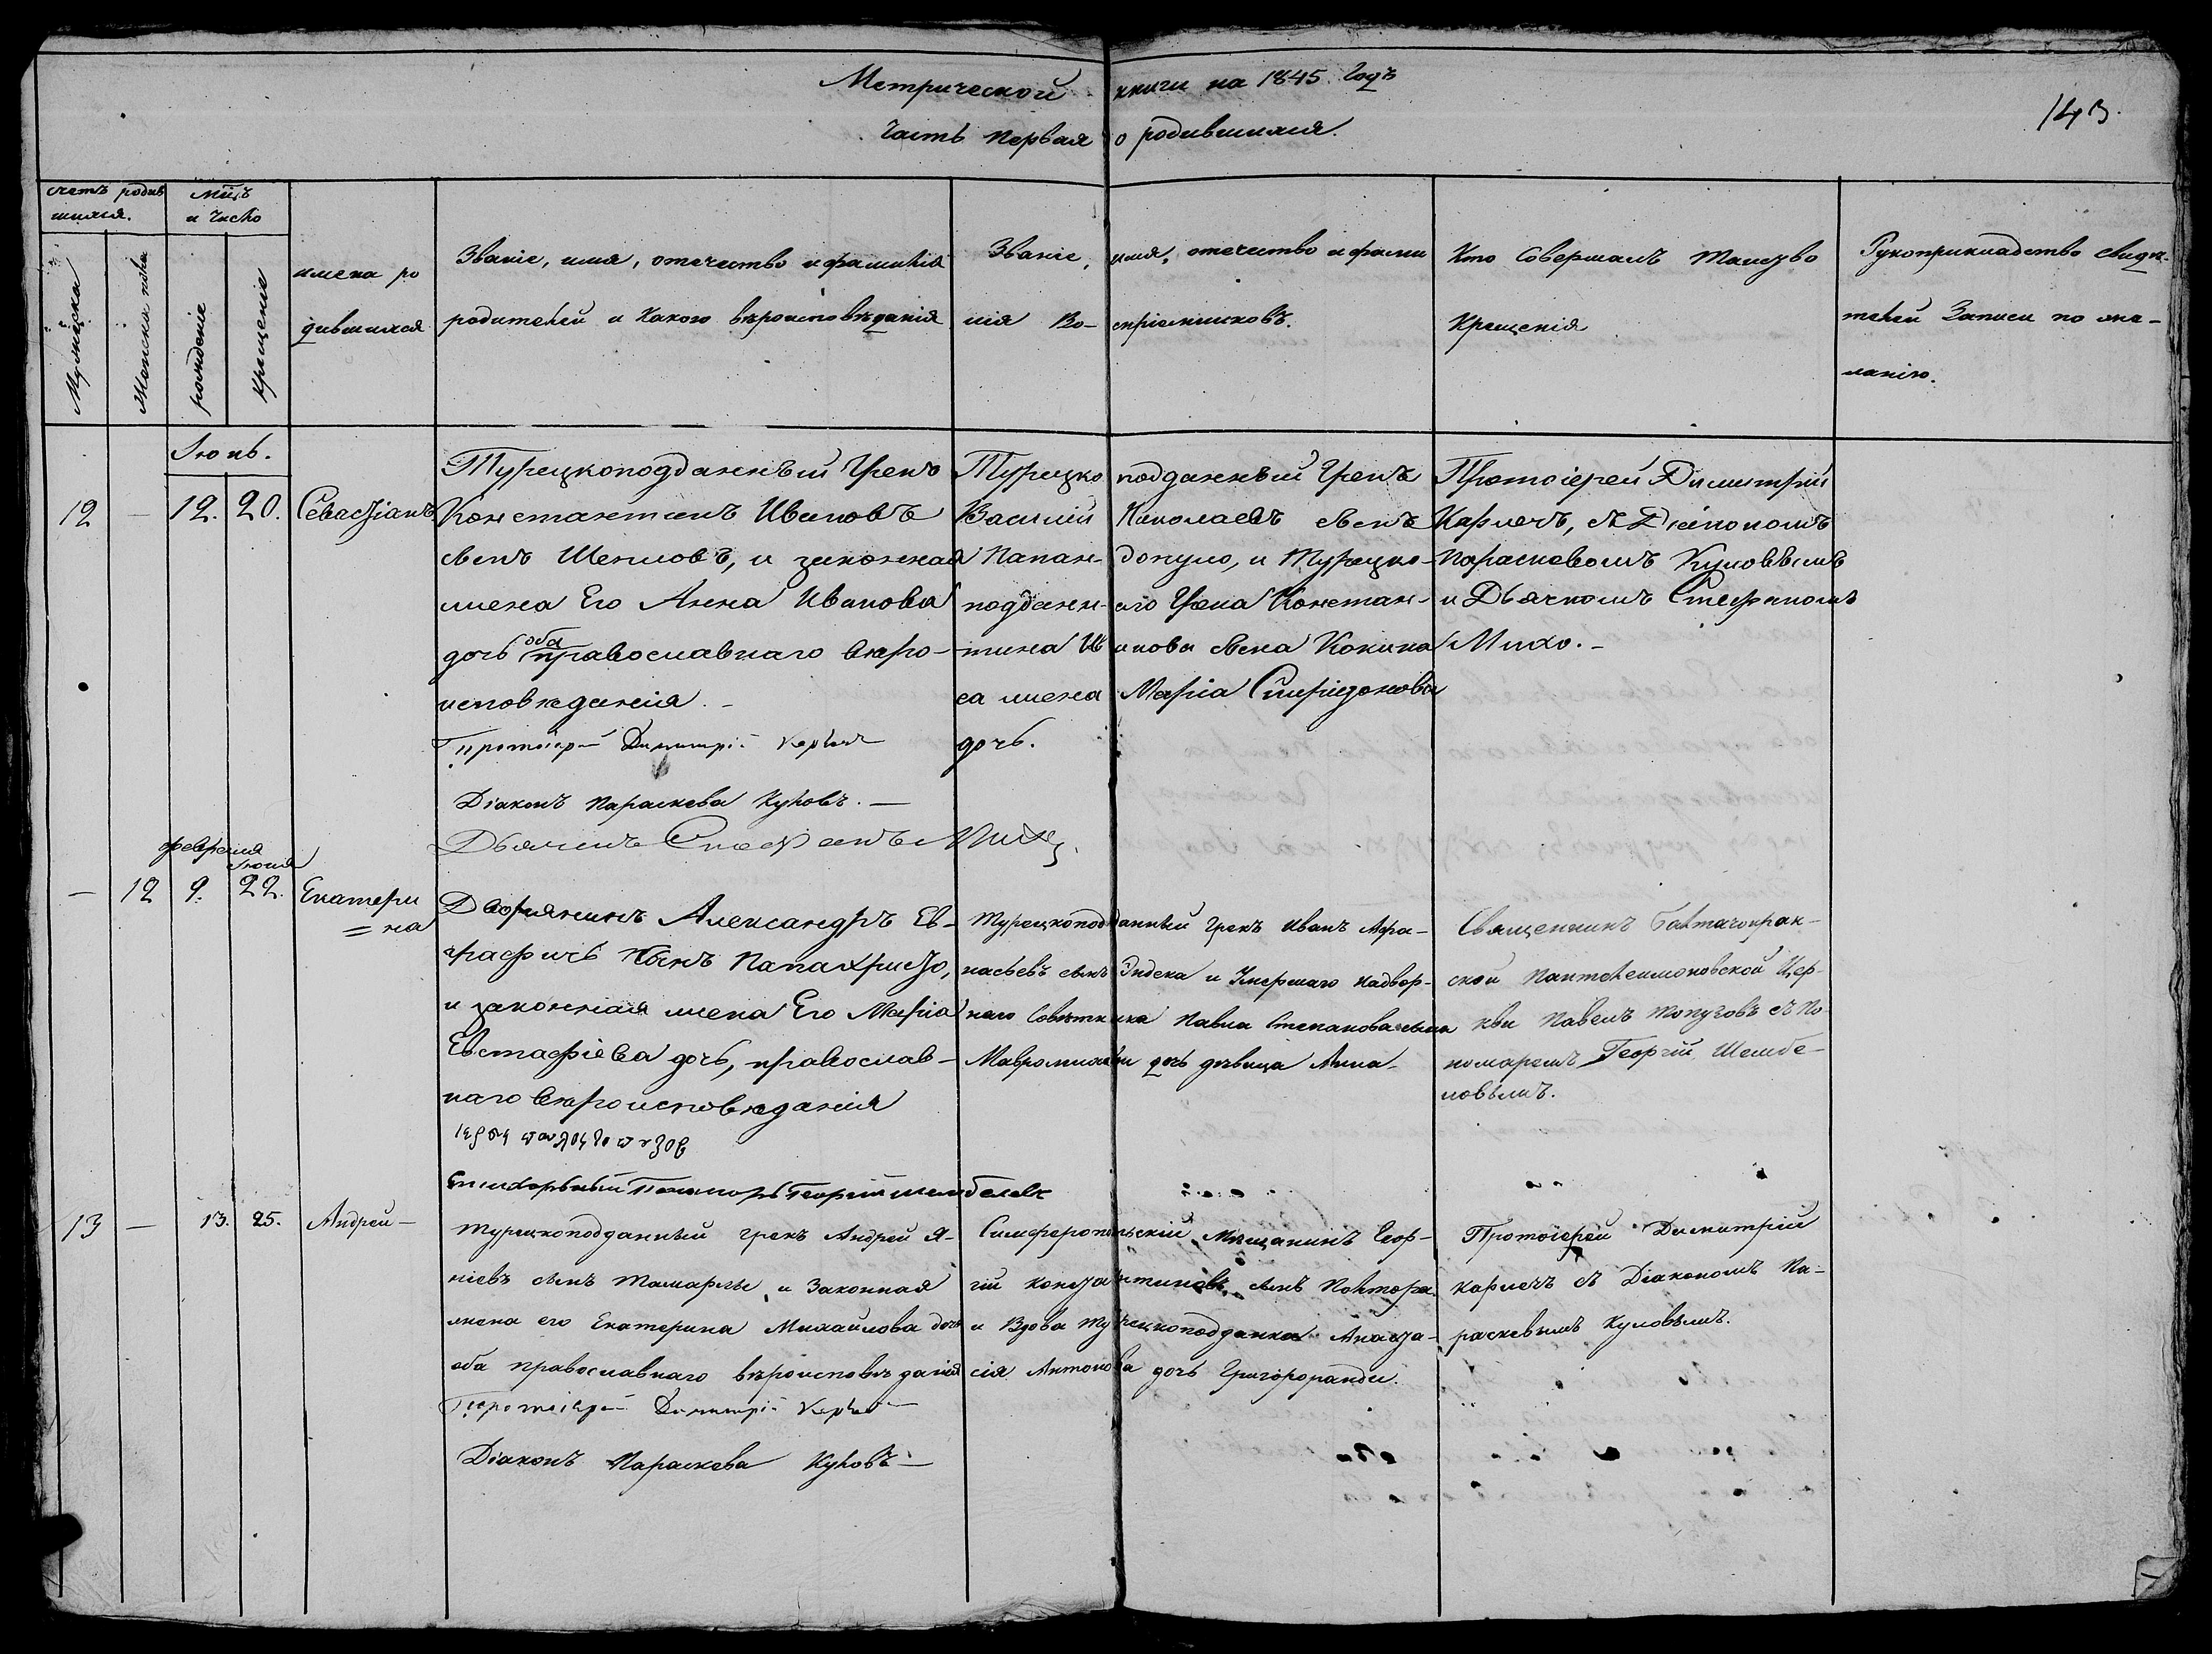 Метрической книги на 1845 Годъ
Часть Первая о родившихся.
143.
счетъ родив
шихся.
мцъ
и число
Мужеска
Женска пола
рожденіе
Крещеніе
имена ро
дившихся
Званіе, имя, отечество и фамилія
родителей и Какого вѣроисповѣданія
Званіе, имя, отечество и фами
лія Во- спріемниковъ.
Кто Совершалъ Таинство
Крещенія
Рукоприкладство свидѣ-
телей Записи по же-
ланію.
Іюнь.
12 — 12. 20. Севастіанъ
Турецкоподданный Грекъ
Константинъ Ивановъ
сынъ и законная
жена Его Анна Иванова
дочь оба православнаго вѣро-
исповѣданія. –
Протоіерей Димитрій
Діаконъ Параскева Куловъ. —
Дьячекъ Стефанъ
Турецко подданный Грекъ
Василій Николаевъ сынъ
Папан- допуло, и Турецко-
поддан- аго Грека Констан-
тина Ив анова сына Кокина
са жена Марія Спиридонова
дочь.
Протоіерей Димитрій
Карлечъ, съ Діакономъ
Параскевомъ Куловымъ
и Дьячкомъ Стефаномъ
Михо. –
февраля
Іюня
— 12 9. 22. Екатери
= на
Дворянинъ Александръ Ев-
графичъ сынъ Папахристо,
и законная жена Его Марія
Евстафіева дочь, православ-
наго вѣроисповѣданія
Турецкоподданный Грекъ Иванъ Афа-
насьевъ сынъ Индека и Умершаго Надвор-
наго Совѣтника Павла Степанова сына
Мавромихали дочь дѣвица Анна
Священникъ
ской Пантелеимоновской Цер-
кви Павелъ Топузовъ съ По
номаремъ Георгій Шембе-
ловымъ.
Пономарь Георгій Шембелевъ
13 — 13. 25. Андрей —
Турецкоподданный грекъ Андрей Я-
ніевъ сынъ и Законная
жена его Екатерина Михайлова дочь
оба православнаго вѣроисповѣданія
Протоіерей Димитрій
Діаконъ Параскева Куловъ —
Симферопольскій Мѣщанинъ Геор-
гій Константиновъ сынъ Полтора
и Вдова Турецкоподданная Анаста-
сія Антонова дочь
Протоіерей Димитрій
Карлечъ съ Діакономъ Па-
раскевымъ Куловымъ.